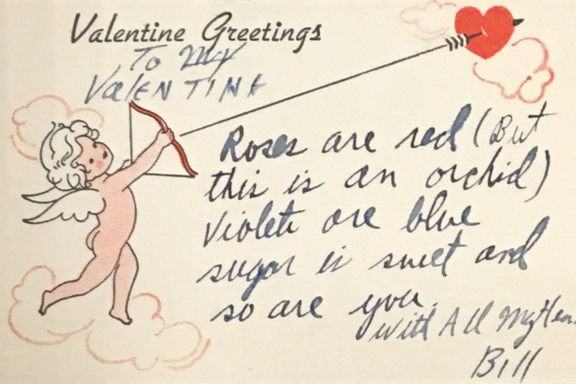 Valentine Greetings
To My
VaLENTINE
Roses are red (But
this is an orchid)
Violets are blue
sugar is sweet and
so are you.
with All My
Bill